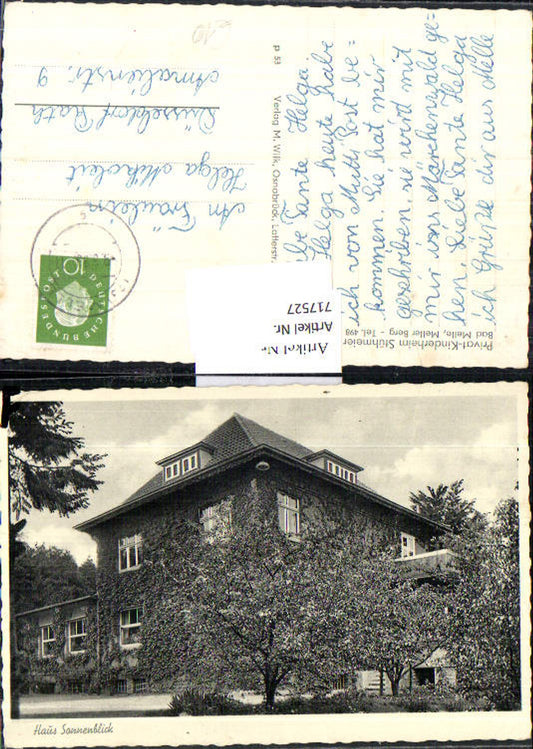 Privat-Kinderheim Stühmeier
Bad Melle, Meller Berg - Tel. 498
Liebe Tante Helga.
Helga heute habe
ich von Mutti Post be=
kommen. Sie hat mir
geschrieben, sie wird mit
mir ins Märchenwald ge=
hen. Liebe Tante Helga
ich Grüße dir aus Melle
P 53
Verlag M. Wilk, Osnabrück, Lotterstr.
An Fräulein
Helga Mikoleit
Düsseldorf Rath
Amalienstr. 9
10
DEUTSCHE
BUNDESPOST
Artikel Nr.
Artikel Nr.
717527
Haus Sonnenblick